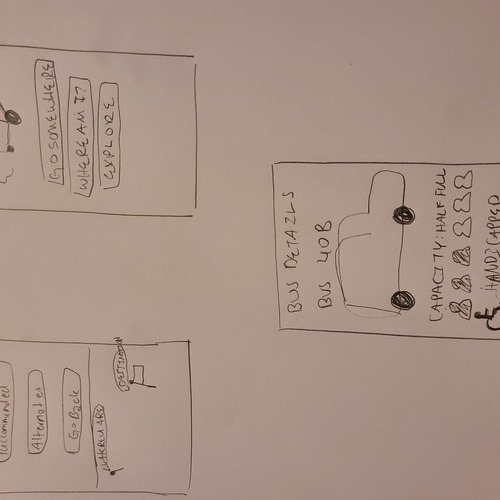 Recommended
Alternates
Go Back
WHERE U ARE
DESTINATION
GO SOMEWHERE
WHERE AM I?
EXPLORE
BUS DETAILS
BUS 40B
CAPACITY: HALF FULL
HANDICAPPED